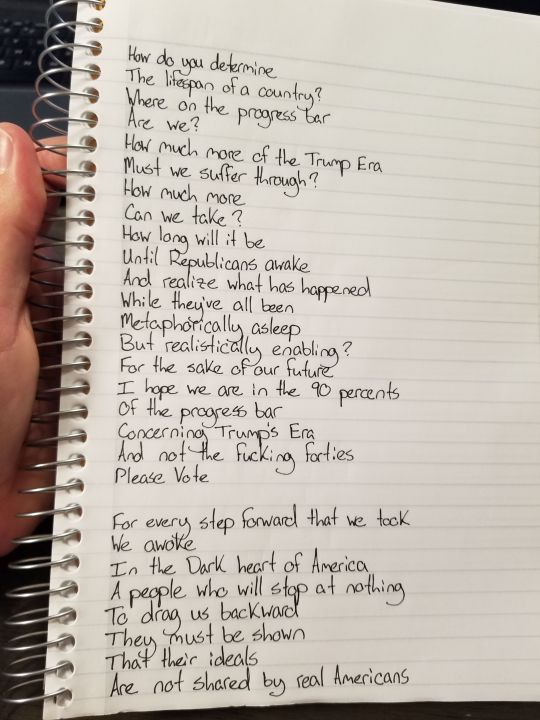 How do you determine
The lifespan of a country?
Where on the progress bar
Are we?
How much more of the Trump Era
Must we suffer through?
How much more
Can we take?
How long will it be
Until Republicans awake
And realize what has happened
While they've all been
Metaphorically asleep
But realistically enabling?
For the sake of our future
I hope we are in the 90 percents
Of the progress bar
Concerning Trump's Era
And not the fucking forties
Please Vote

For every step forward that we took
We awoke
In the Dark heart of America
A people who will stop at nothing
To drag us backward
They must be shown
That their ideals
Are not shared by real Americans